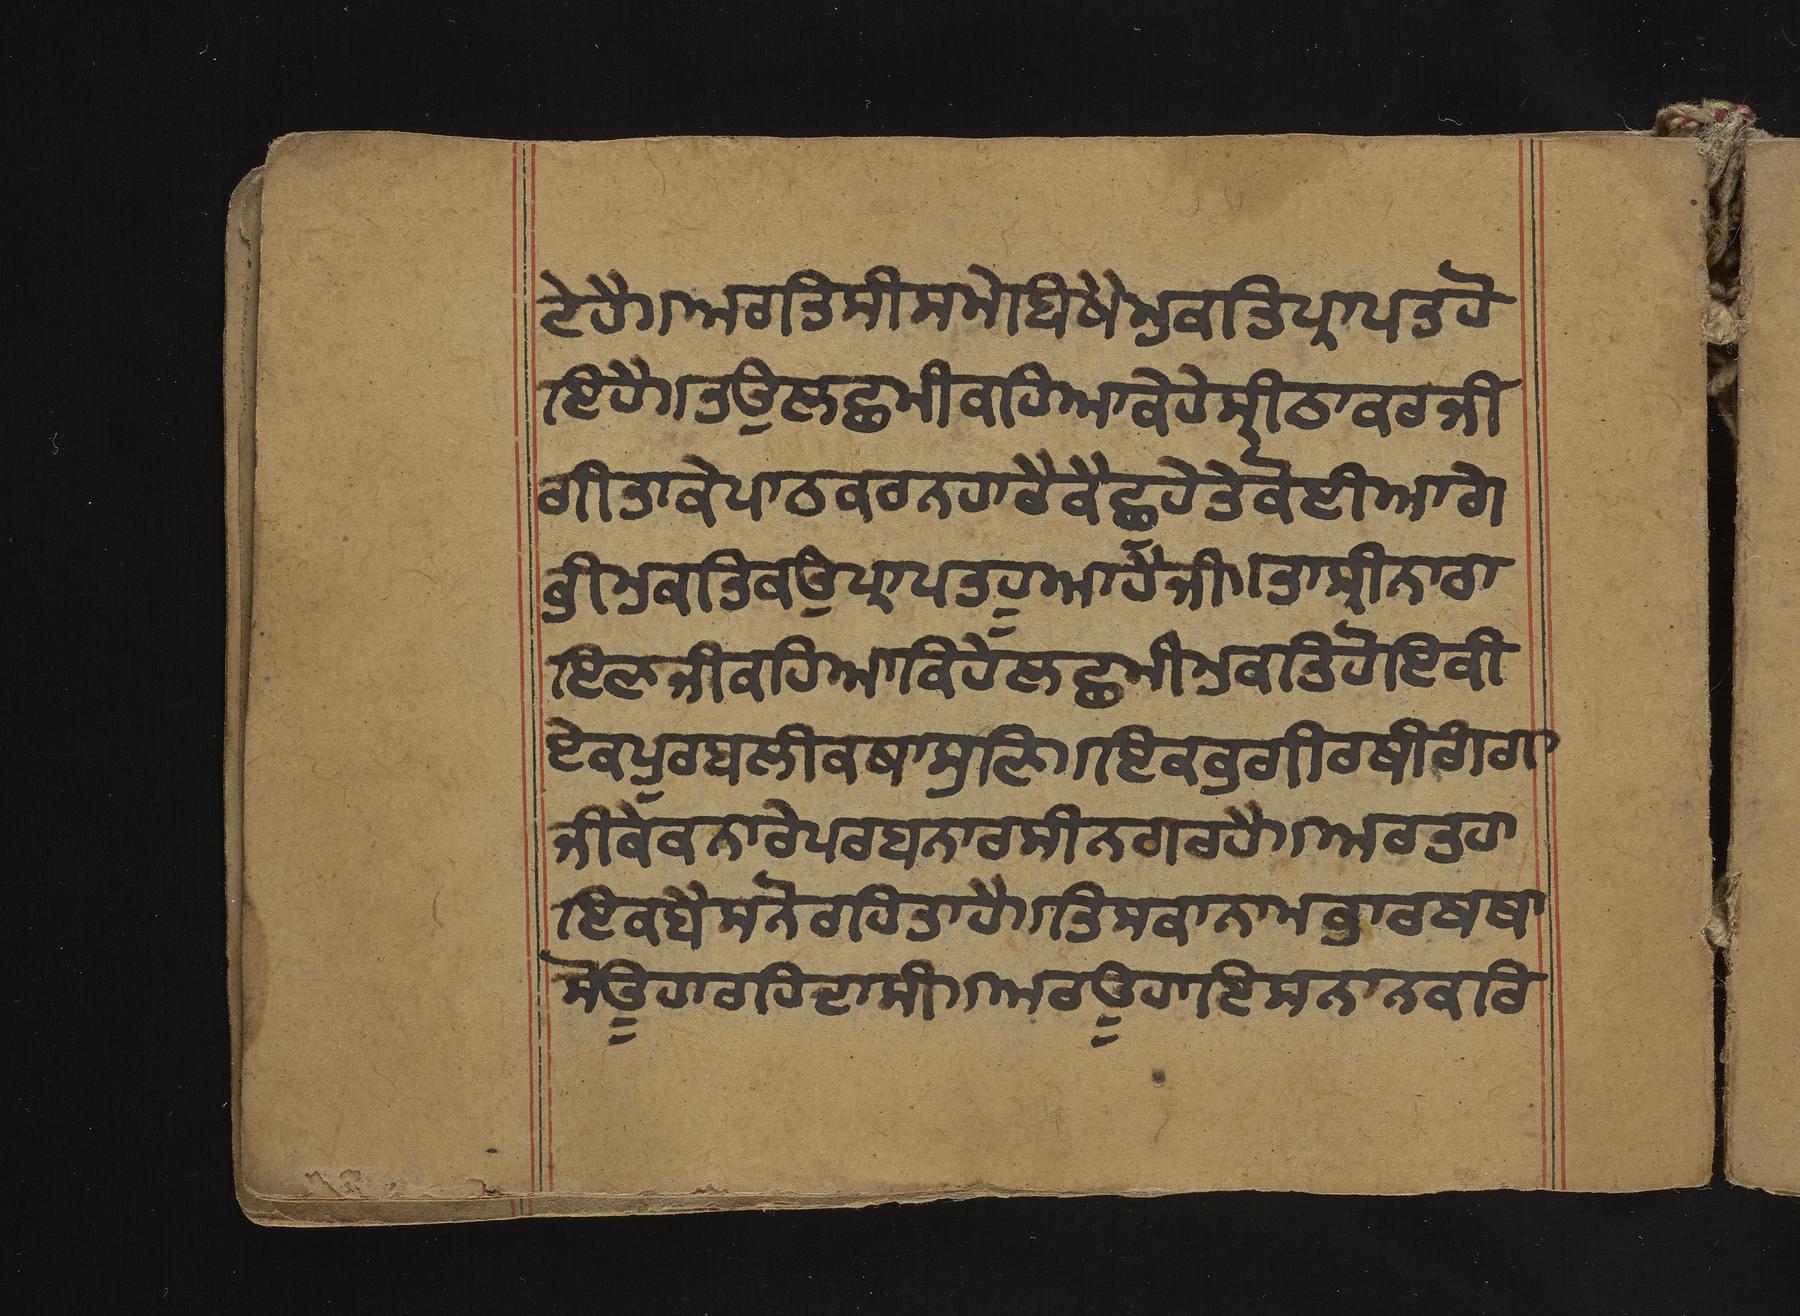 ਣੇਹੈ॥ਅਰਤਿਸੀਸਮੇਬਿਖੈਮੁਕਤਿਪ੍ਰਾਪਤਹੋ
ਇਹੈ॥ਤਉਲਛਮੀਕਹਿਆਕੇਹੇਸ੍ਰੀਠਾਕਰਜੀ
ਗੀਤਾਕੇਪਾਠਕਰਨਹਾਰੈਕੈਛੁਹੇਤੇਕੋਈਆਗੇ
ਭੀਮੁਕਤਿਕਉਪ੍ਰਾਪਤਹੁਆਹੈਜੀ॥ਤਾਸ੍ਰੀਨਾਰਾ
ਇਣਜੀਕਹਿਆਕਿਹੇਲਛਮੀਮੁਕਤਿਹੋਇਕੀ
ਏਕਪੁਰਬਲੀਕਥਾਸੁਣਿ॥ਇਕਭੁਗੀਰਥੀਗੰਗਾ
ਜੀਕੇਕਨਾਰੇਪਰਬਨਾਰਸੀਨਗਰਹੈ॥ਅਰਤਹਾ
ਇਕਬੈਸਨੋਰਹਿਤਾਹੈ॥ਤਿਸਕਾਨਾਮਭਾਰਥਥਾ
ਸੋਉਹਾਰਹਿਦਾਸੀ॥ਅਰਉਹਾਇਸਨਾਨਕਰਿ